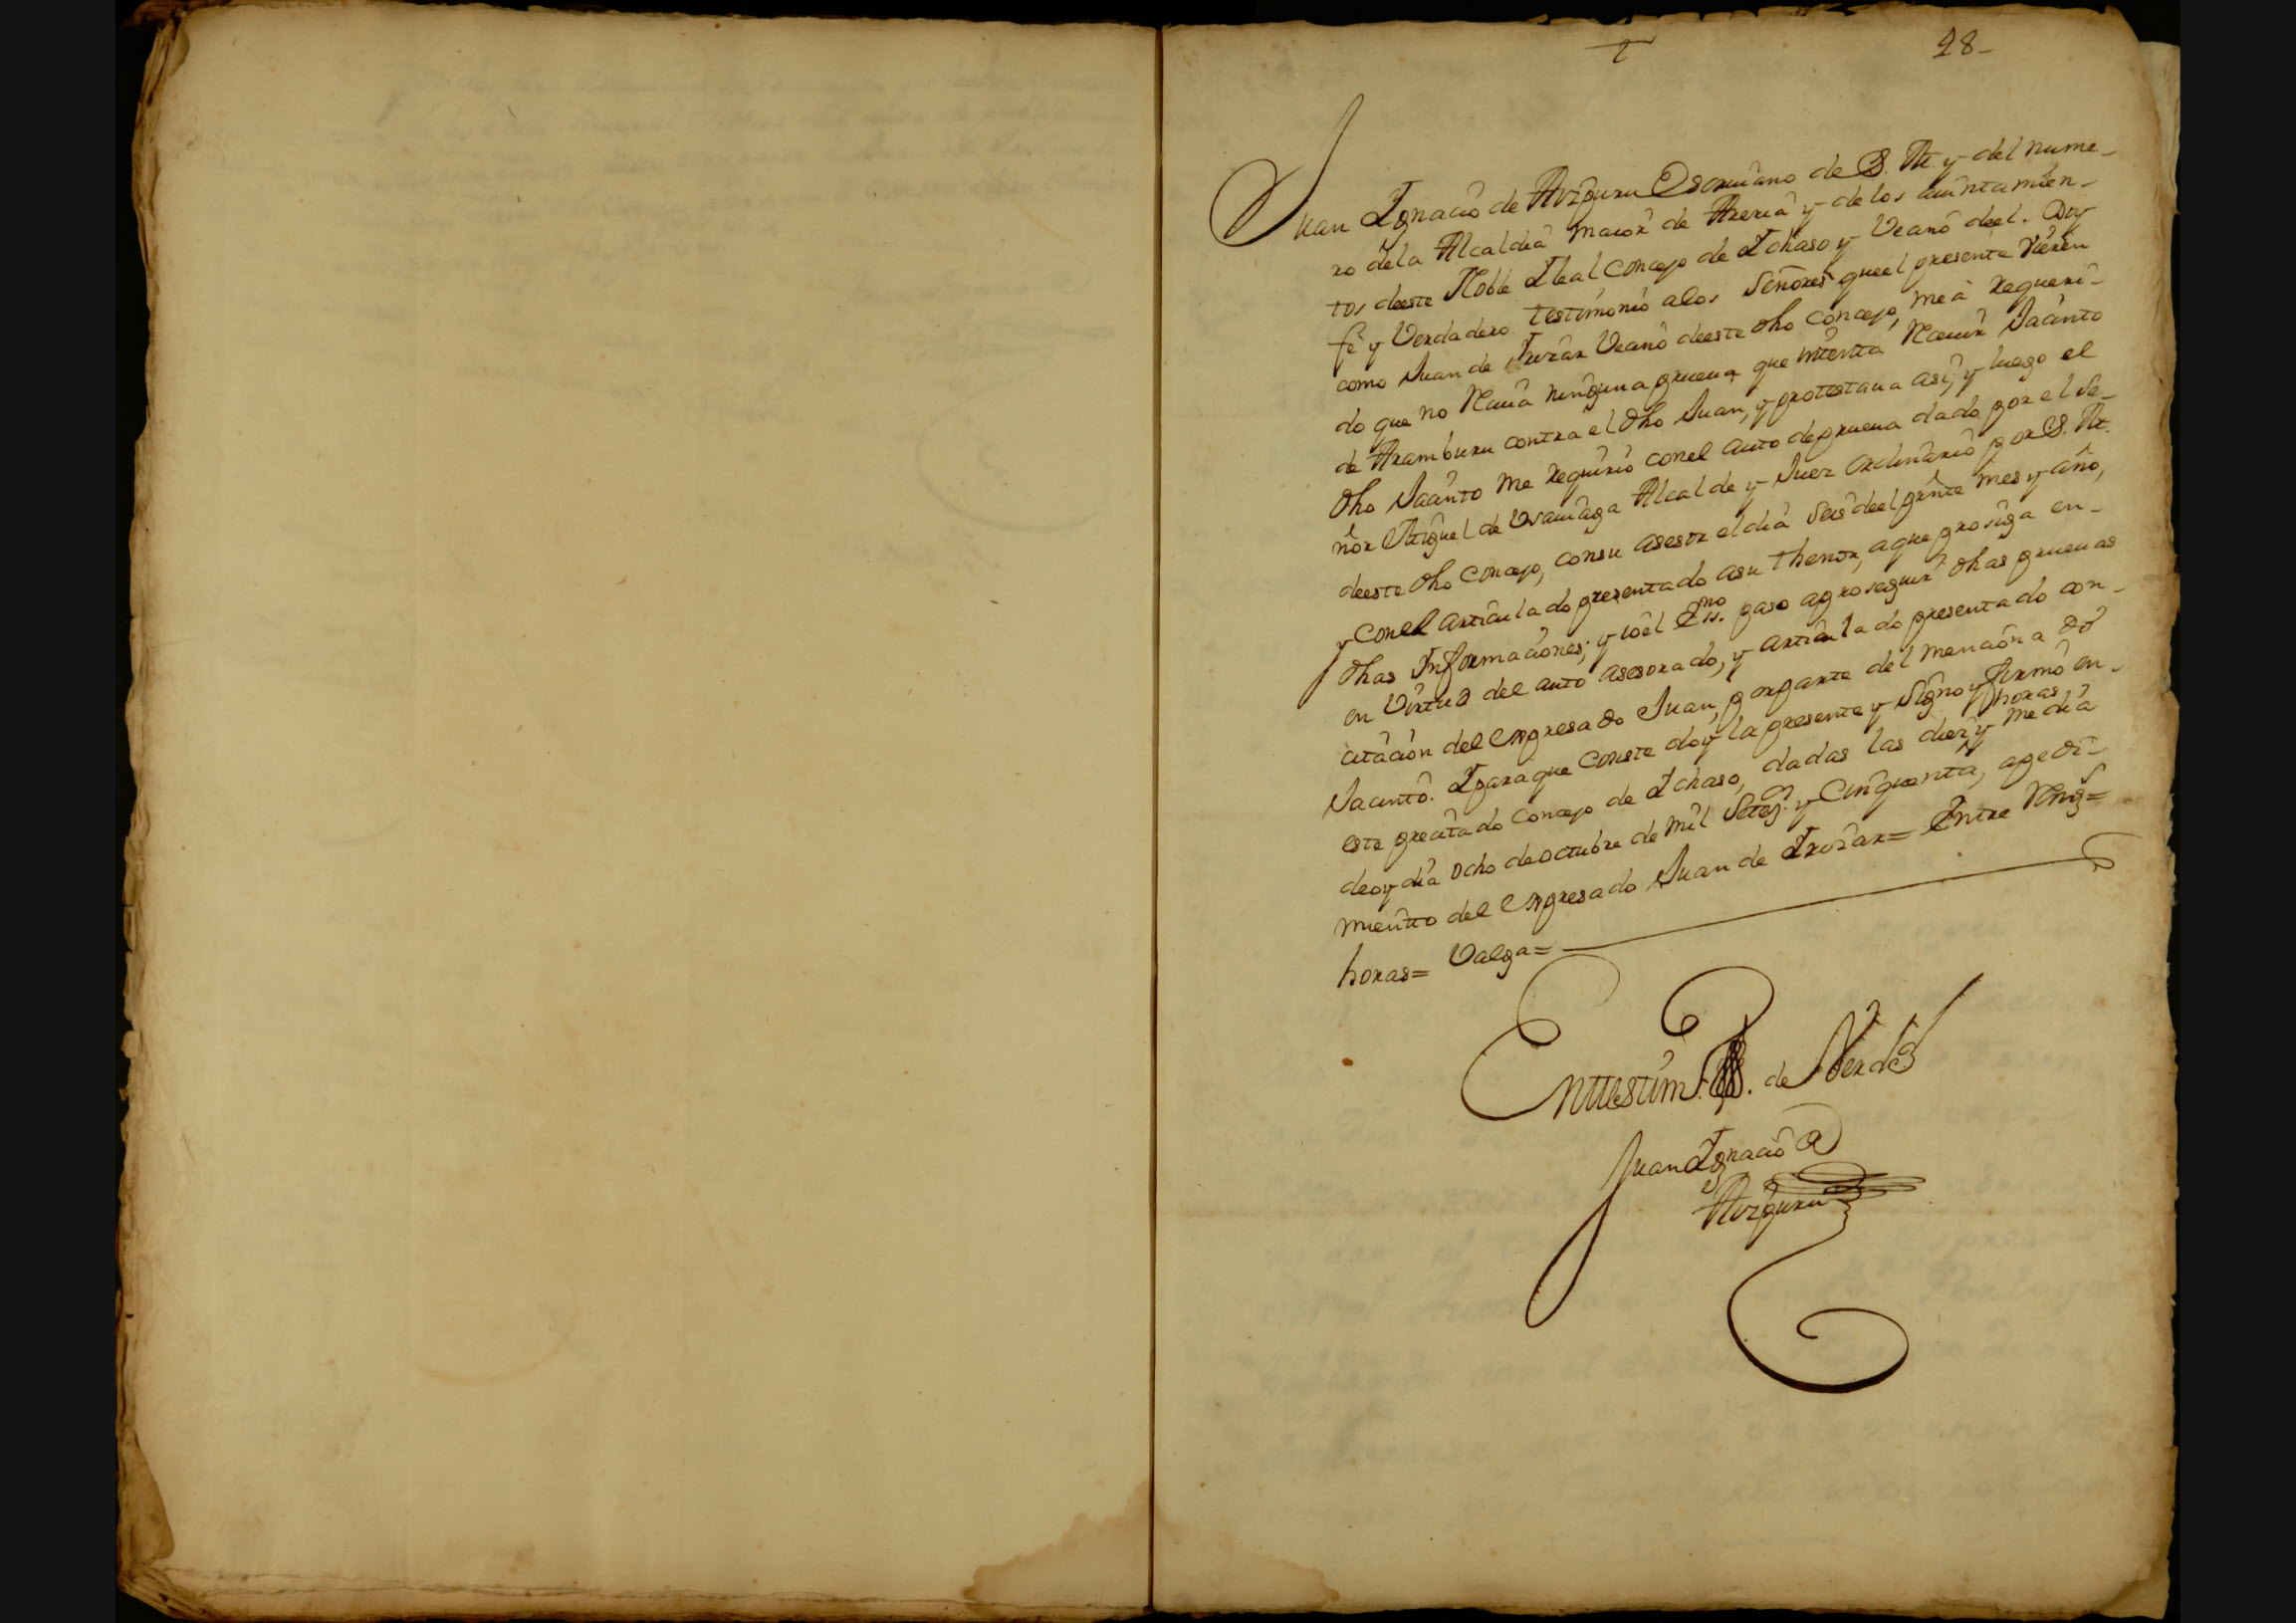 28-
Juan Ygnacio de Aizpuru Escriuano de S. M. y del nume-
ro dela Alcaldia maior de Areria y de los aiuntamien-
tos deeste Noble Leal Concejo de Ychaso y Vecino deel. Doy
fe y Verdadero testimonio alos Señores queel presente vieren
como Juan de Yrizar Vecino deeste dho concejo, me à requeri-
do que no Reciua ninguna prueua que intenta Receuir Jacinto
de Aramburu contra el dho Juan, y protestaua asi; y luego el
dho Jacinto me requirio conel auto deprueua dado por el Se-
ñor Miguel de Vsauiaga Alcalde y Juez Ordinario por S. M.
deeste dho concejo, consu asesor eldia seis deel preste mes y año,
y conel articulado presentado asu thenor, aque prosiga en-
dhas Informaciones; y ioel Essno. paso aproseguir dhas prueuas
en Virtud del auto asesorado, y articulado presentado con-
citacion del expresado Juan, porparte del mencionado
Jacinto. Yparaque conste doy la presente y signo y firmo en-
este precitado Concejo de Ychaso, dadas las diez y media horas
deoy dia ocho deoctubre de mil Seteçs. y Cinquenta, apedi-
miento del expresado Juan de Yrizar= Entre Rengs=
horas= Valga=
Enttestimo. de Verdad
Juan Ygnacio de
Aizpuru